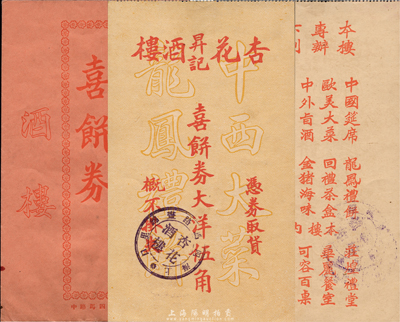 喜餅劵
酒樓
杏花
昇記
酒樓
中西大菜
龍鳳禮餅
憑劵取貨
喜餅劵大洋伍角
概不掛失
杏花
酒樓
本樓
專辦
下列
中國筵席
歐美大菜
中外旨酒
龍鳳禮餅
回禮茶盒
金猪海味
禮堂
華麗餐室
可容百桌